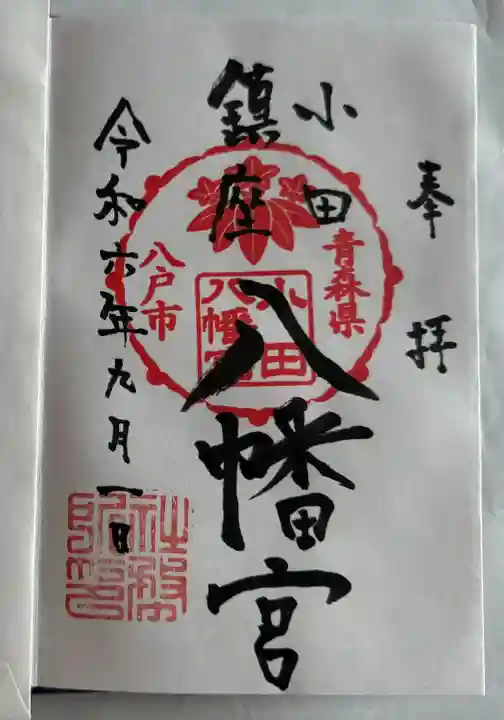 奉拝
小田
鎮座
八幡宮
青森県
八戸市
小田
八幡宮
令和六年九月一日